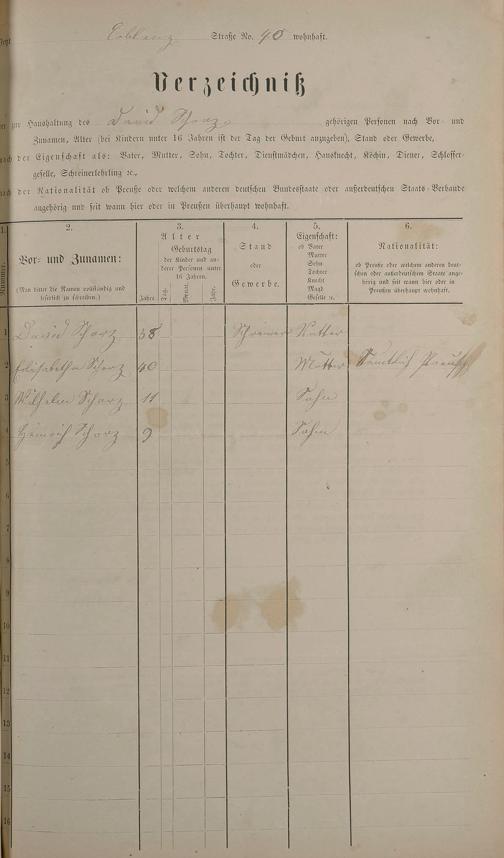 Coblenz Straße No. 40 wohnhaft.
Verzeichniß
zur Haushaltung des David Scharz gehörigen Personen nach Vor- und
Zunamen, Alter (bei Kindern unter 16 Jahren ist der Tag der Geburt anzugeben), Stand oder Gewerbe,
nach der Eigenschaft als: Vater, Mutter, Sohn, Tochter, Dienstmädchen, Hausknecht, Köchin, Diener, Schlosser-
geselle, Schreinerlehrling ꝛc.,
nach der Nationalität ob Preuße oder welchem anderen deutschen Bundesstaate oder außerdeutschen Staats-Verbande
angehörig und seit wann hier oder in Preußen überhaupt wohnhaft.
1. 2. 3. 4. 5. 6.
Nummer.
Vor- und Zunamen:
(Man bittet die Namen vollständig und
leserlich zu schreiben.)
Alter
Geburtstag
der Kinder und an-
derer Personen unter
16 Jahren.
Jahre Tag. Monat. Jahr.
Stand
oder
Gewerbe.
Eigenschaft:
ob Vater
Mutter
Sohn
Tochter
Knecht
Magd
Geselle ꝛc.
Nationalität:
ob Preuße oder welchem anderen deut-
schen oder außerdeutschen Staate ange-
hörig und seit wann hier oder in
Preußen überhaupt wohnhaft.
1 David Scharz 38 Schreiner Vatter
2 Elisabetha Scharz 40 Mutter Sämtlich Preuß
3 Wilhelm Scharz 11 Sohn
4 Heinrich Scharz 9 Sohn
5
6
7
8
9
10
11
12
13
14
15
16